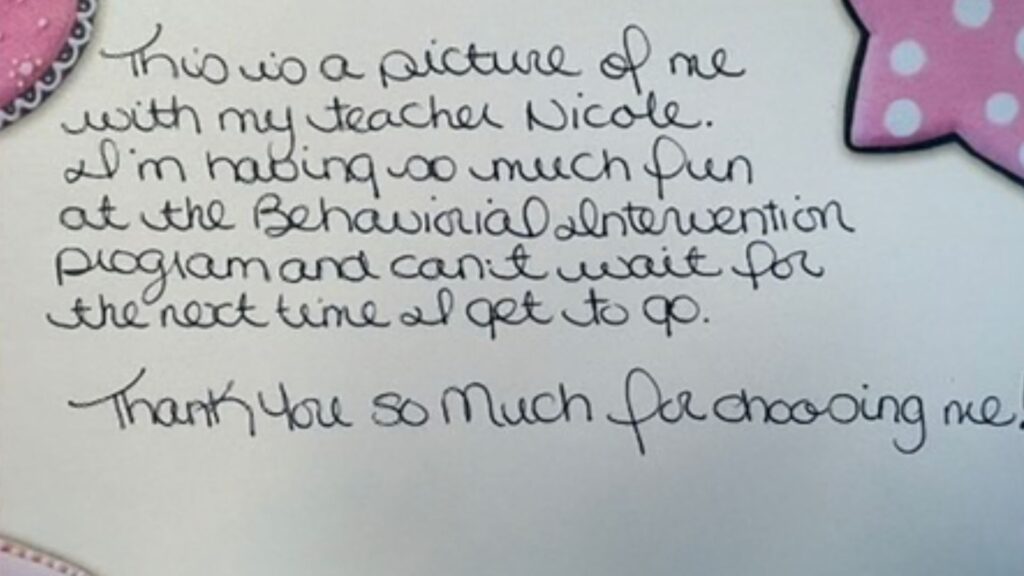 This is a picture of me
with my teacher Nicole.
I'm having so much fun
at the Behaviorial Intervention
program and can't wait for
the next time I get to go.
Thank you so Much for choosing me!